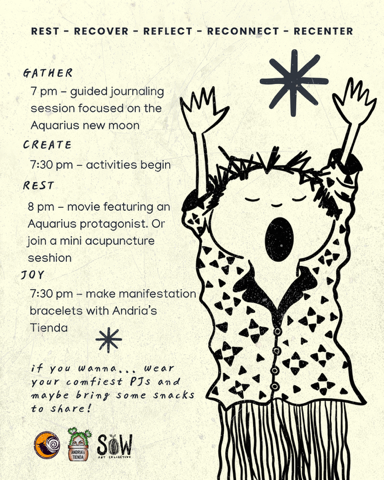 REST - RECOVER - REFLECT - RECONNECT - RECENTER
GATHER
7 pm – guided journaling
session focused on the
Aquarius new moon
CREATE
7:30 pm – activities begin
REST
8 pm – movie featuring an
Aquarius protagonist. Or
join a mini acupuncture
seshion
JOY
7:30 pm – make manifestation
bracelets with Andria's
Tienda
if you wanna... wear
your comfiest PJs and
maybe bring some snacks
to share!
ANDRIA'S
TIENDA
SOW
ART COLLECTIVE